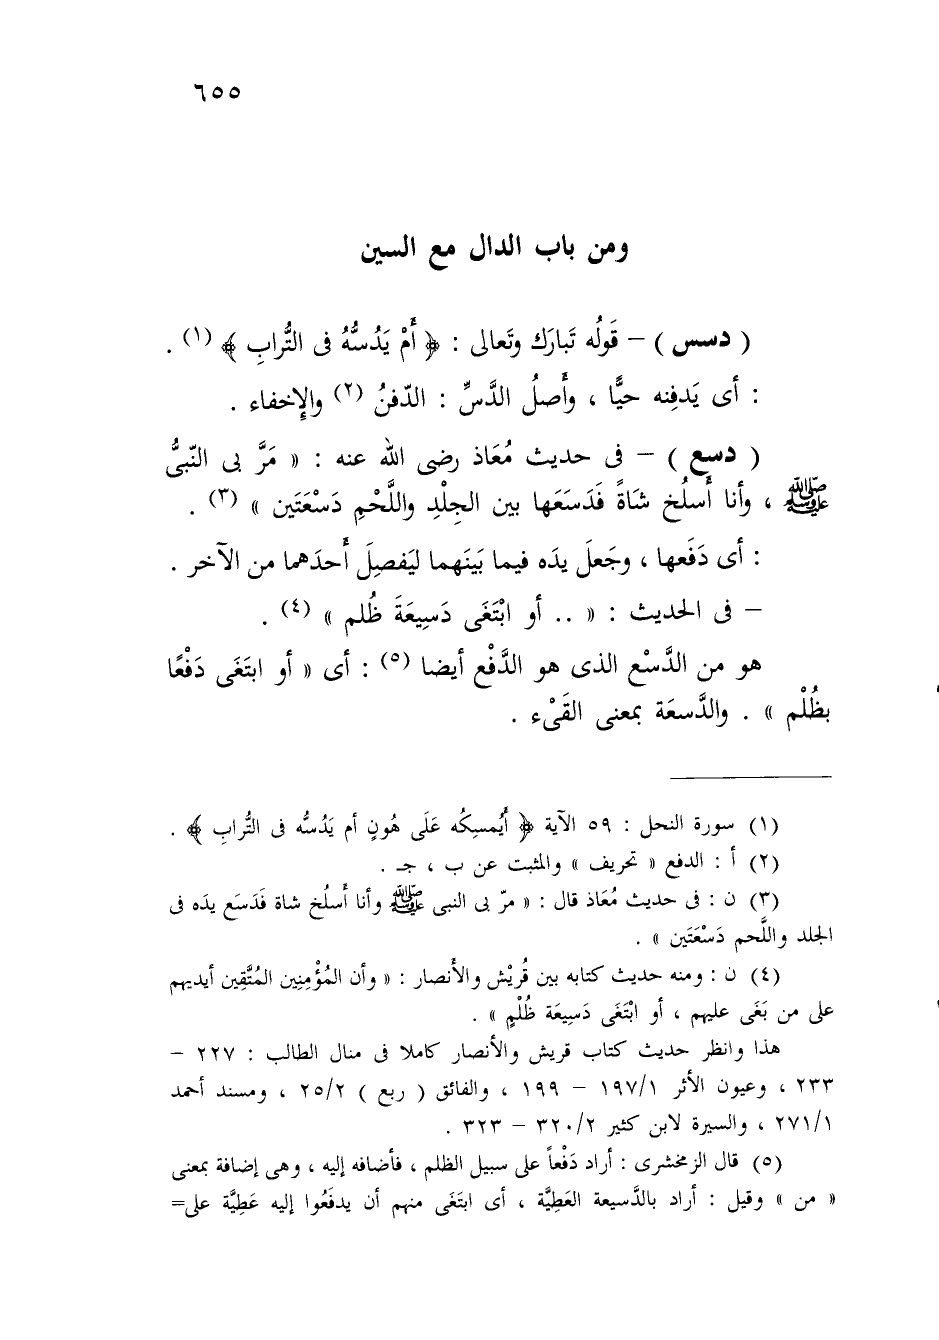 ٦٥٥
ومن باب الدال مع السين
( دسس ) – قَولُه تَبارَك وتَعالى : ﴿ أَمْ يَدُسُّهُ فى التُّرابِ ﴾ (١) .
: أى يَدفِنه حيًّا ، وأَصلُ الدَّسِّ : الدّفنُ (٢) والإخفاء .
( دسع ) – فى حديث مُعَاذ رضى الله عنه : « مَرَّ بى النّبىُّ
ﷺ ، وأنا أَسلُخ شَاةً فَدَسَعَها بين الجِلْدِ واللَّحْمِ دَسْعَتَين » (٣) .
: أى دَفَعها ، وجَعلَ يدَه فيما بَينَهما ليَفصِلَ أَحدَهما من الآخر .
– فى الحديث : « .. أو ابْتَغَى دَسِيعَةَ ظُلم » (٤) .
هو من الدَّسْع الذى هو الدَّفْع أيضا (٥) : أى « أو ابتَغَى دَفْعًا
بظُلْم » . والدَّسعَة بمعنى القَىْء .
(١) سورة النحل : ٥٩ الآية ﴿ أَيُمسِكُه عَلَى هُونٍ أم يَدُسُّه فى التُّرابِ ﴾ .
(٢) أ : الدفع « تحريف » والمثبت عن ب ، جـ .
(٣) ن : فى حديث مُعَاذ قال : « مرّ بى النبى ﷺ وأنا أَسلُخ شاة فَدَسَع يدَه فى
الجلد واللَّحم دَسْعَتَين » .
(٤) ن : ومنه حديث كتابه بين قُريْش والأَنصار : « وأن المُؤْمِنِين المُتَّقِين أيديهم
على من بَغَى عليهم ، أو ابْتَغَى دَسِيعَة ظُلْمٍ » .
هذا وانظر حديث كتاب قريش والأنصار كاملا فى منال الطالب : ٢٢٧ –
٢٣٣ ، وعيون الأثر ١٩٧/١ – ١٩٩ ، والفائق ( ربع ) ٢٥/٢ ، ومسند أحمد
٢٧١/١ ، والسيرة لابن كثير ٣٢٠/٢ – ٣٢٣ .
(٥) قال الزمخشرى : أراد دَفْعاً على سبيل الظلم ، فأضافه إليه ، وهى إضافة بمعنى
« من » وقيل : أراد بالدَّسيعة العَطِيَّة ، أى ابتَغَى منهم أن يدفَعُوا إليه عَطِيَّة على=